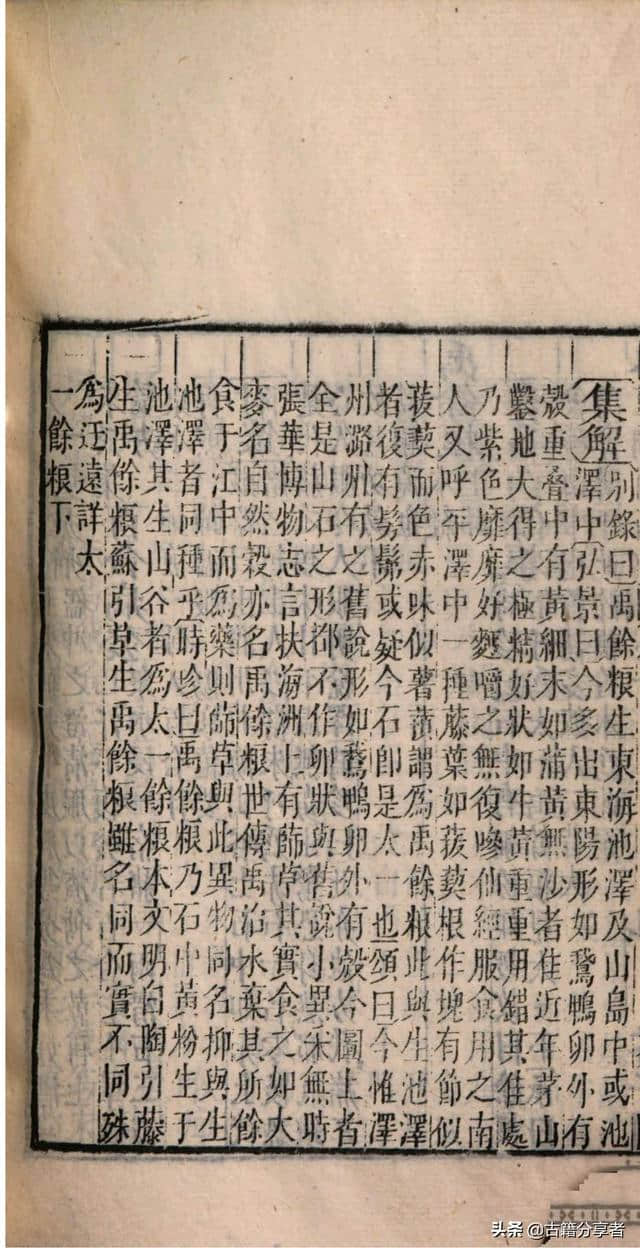 集解別錄曰禹餘粮生東海池澤及山島中或池
澤中弘景曰今多出東陽形如鵞鴨卵外有
殼重叠中有黃細末如蒲黃無沙者佳近年茅山
鑿地大得之極精好狀如牛黃重重用錯其佳處
乃紫色靡靡好麪嚼之無復嘇仙經服食用之南
人又呼平澤中一種藤葉如菝葜根作塊有節似
菝葜而色赤味似薯蕷謂爲禹餘粮此與生池澤
者復有髣髴或疑今石卽是太一也頌曰今惟澤
州潞州有之舊說形如鵞鴨卵外有殼今圖上者
全是山石之形都不作卵狀與舊說小異采無時
張華博物志言扶海洲上有篩草其實食之如大
麥名自然穀亦名禹餘粮世傳禹治水棄其所餘
食于江中而爲藥則篩草與此異物同名抑與生
池澤者同種乎時珍曰禹餘粮乃石中黃粉生于
池澤其生山谷者爲太一餘粮本文明白陶引藤
生禹餘粮蘇引草生禹餘粮雖名同而實不同殊
爲迂遠詳太
一餘粮下
头条 @古籍分享者